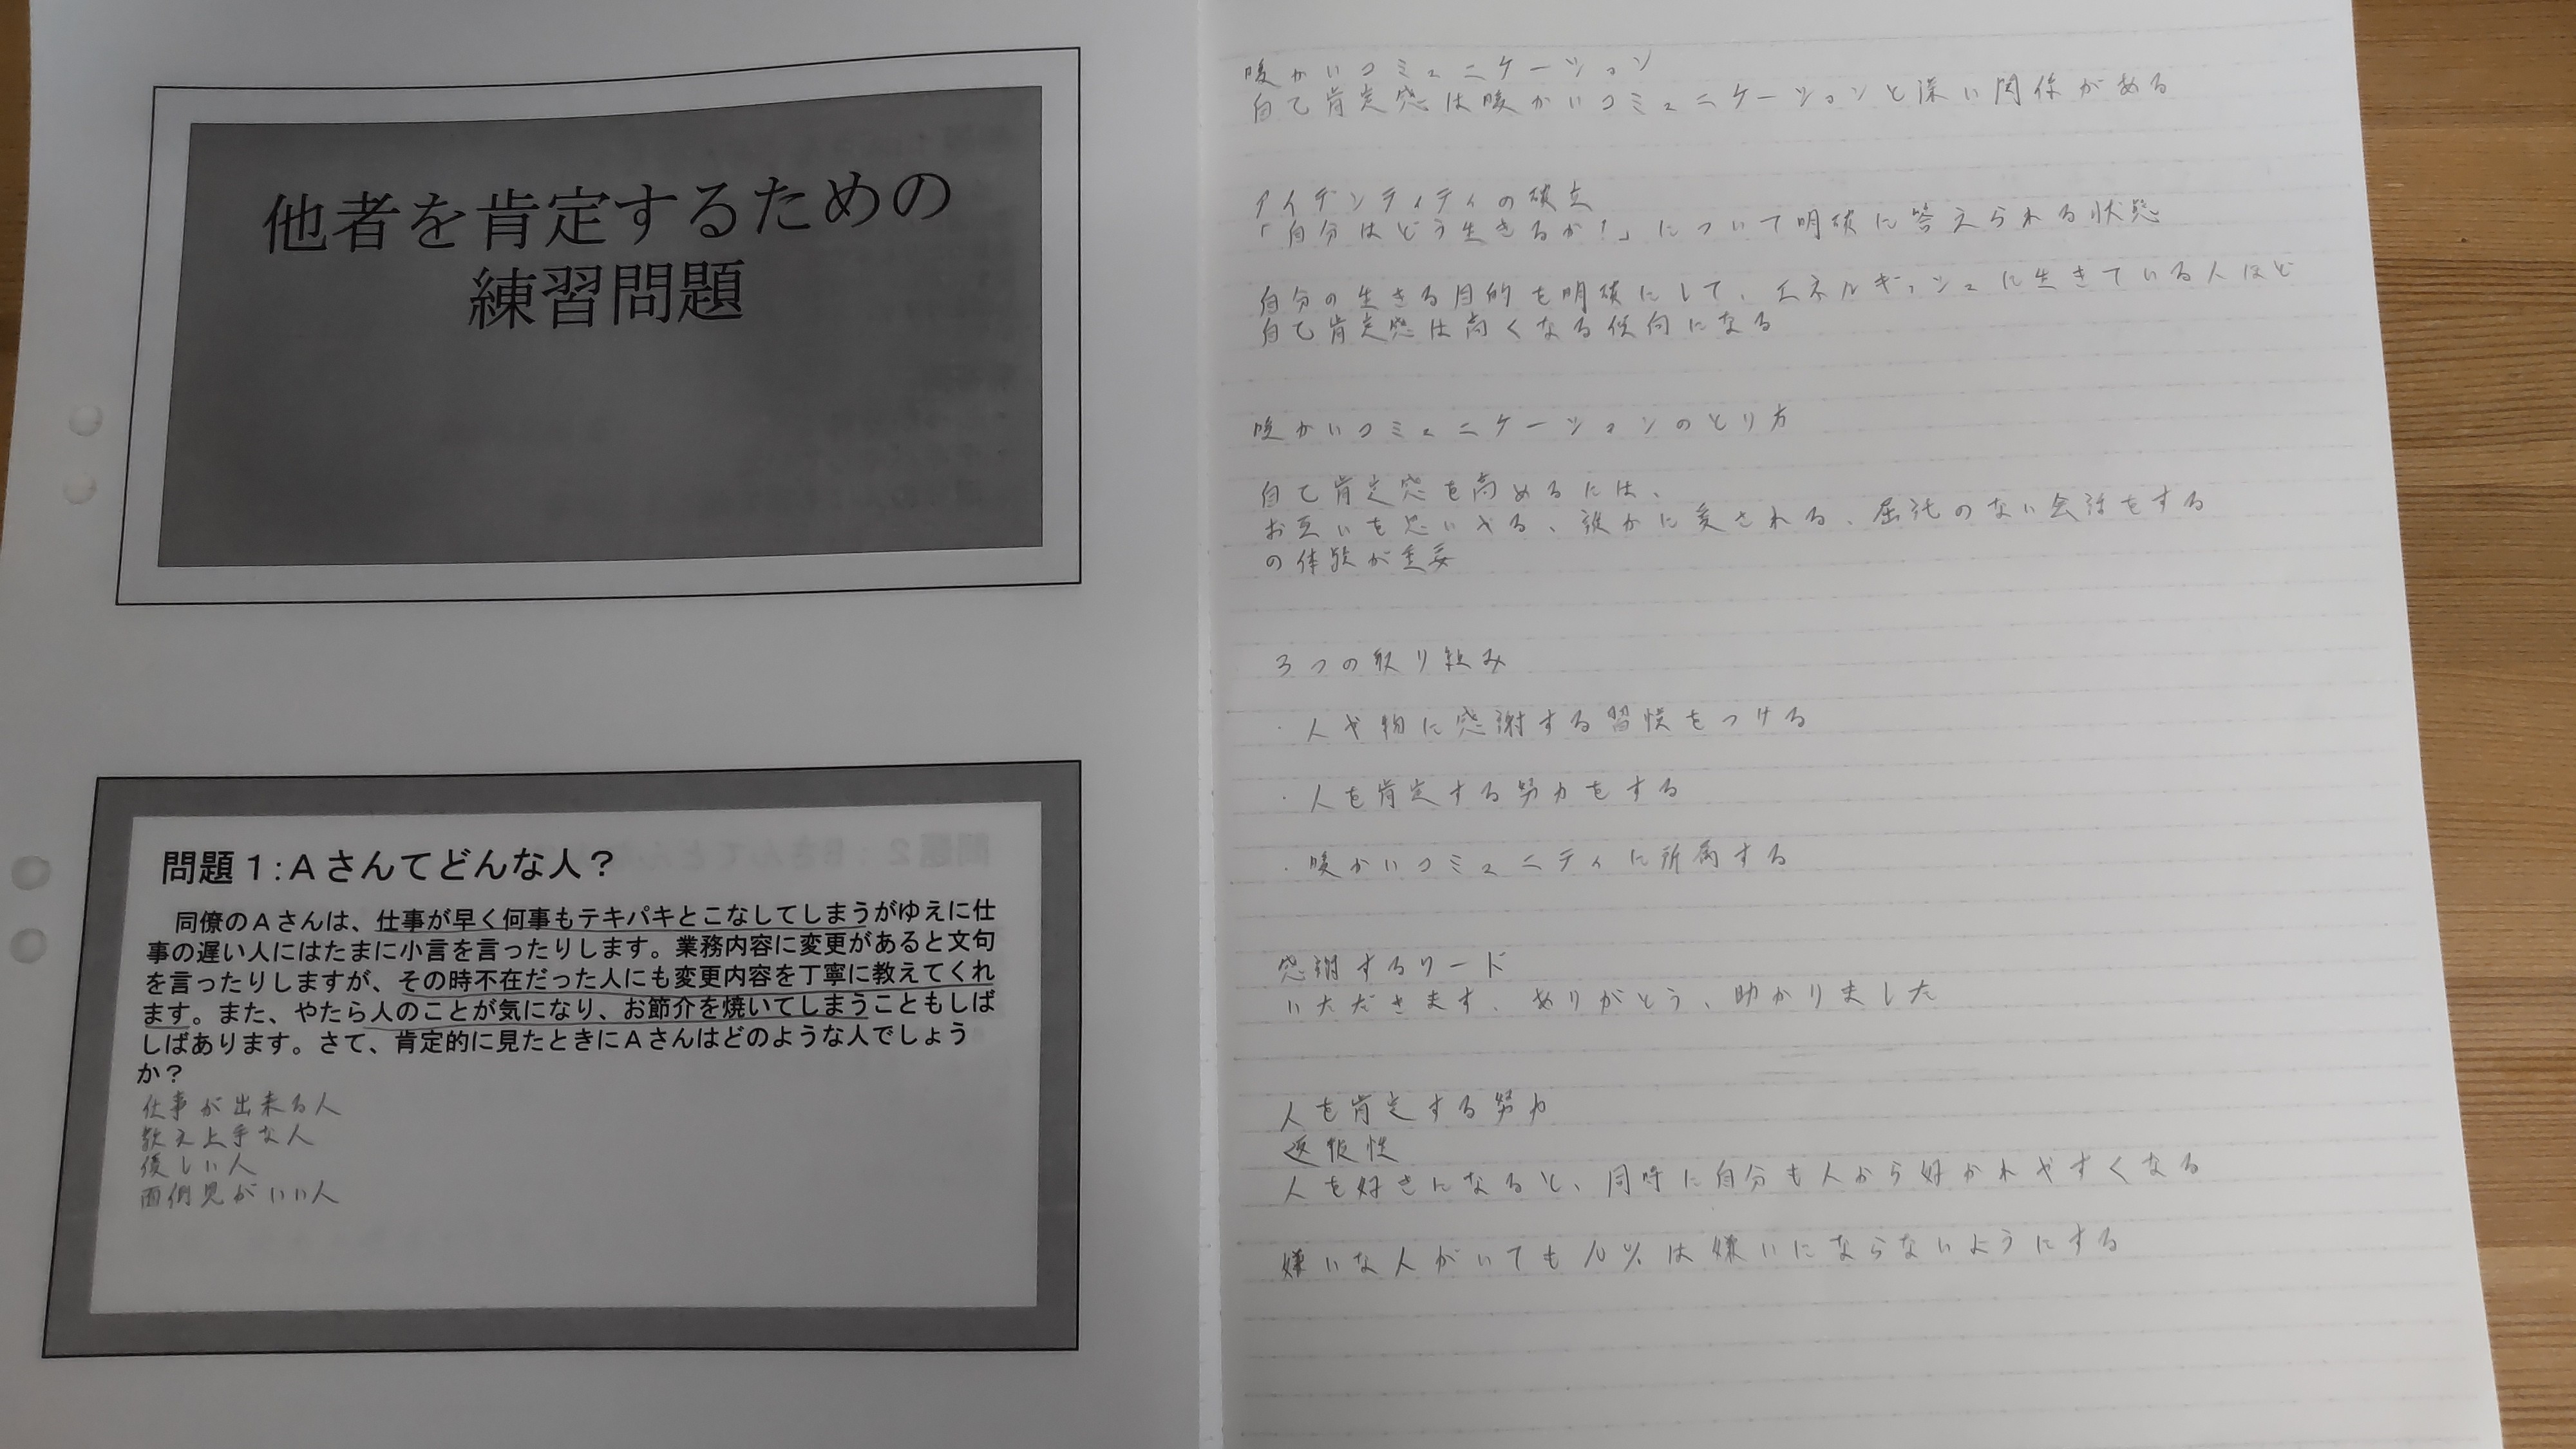 他者を肯定するための
練習問題
問題1:Aさんてどんな人?
同僚のAさんは、仕事が早く何事もテキパキとこなしてしまうがゆえに仕
事の遅い人にはたまに小言を言ったりします。業務内容に変更があると文句
を言ったりしますが、その時不在だった人にも変更内容を丁寧に教えてくれ
ます。また、やたら人のことが気になり、お節介を焼いてしまうこともしば
しばあります。さて、肯定的に見たときにAさんはどのような人でしょう
か?
仕事が出来る人
教え上手な人
優しい人
面倒見がいい人
暖かいコミュニケーション
自己肯定感は暖かいコミュニケーションと深い関係がある
アイデンティティの確立
「自分はどう生きるか!」について明確に答えられる状態
自分の生きる目的を明確にして、エネルギッシュに生きている人ほど
自己肯定感は高くなる傾向になる
暖かいコミュニケーションのとり方
自己肯定感を高めるには、
お互いを思いやる、誰かに愛される、屈託のない会話をする
の体験が重要
3つの取り組み
・人や物に感謝する習慣をつける
・人を肯定する努力をする
・暖かいコミュニティに所属する
感謝するワード
いただきます、ありがとう、助かりました
人を肯定する努力
返報性
人を好きになると、同時に自分も人から好かれやすくなる
嫌いな人がいても は嫌いにならないようにする